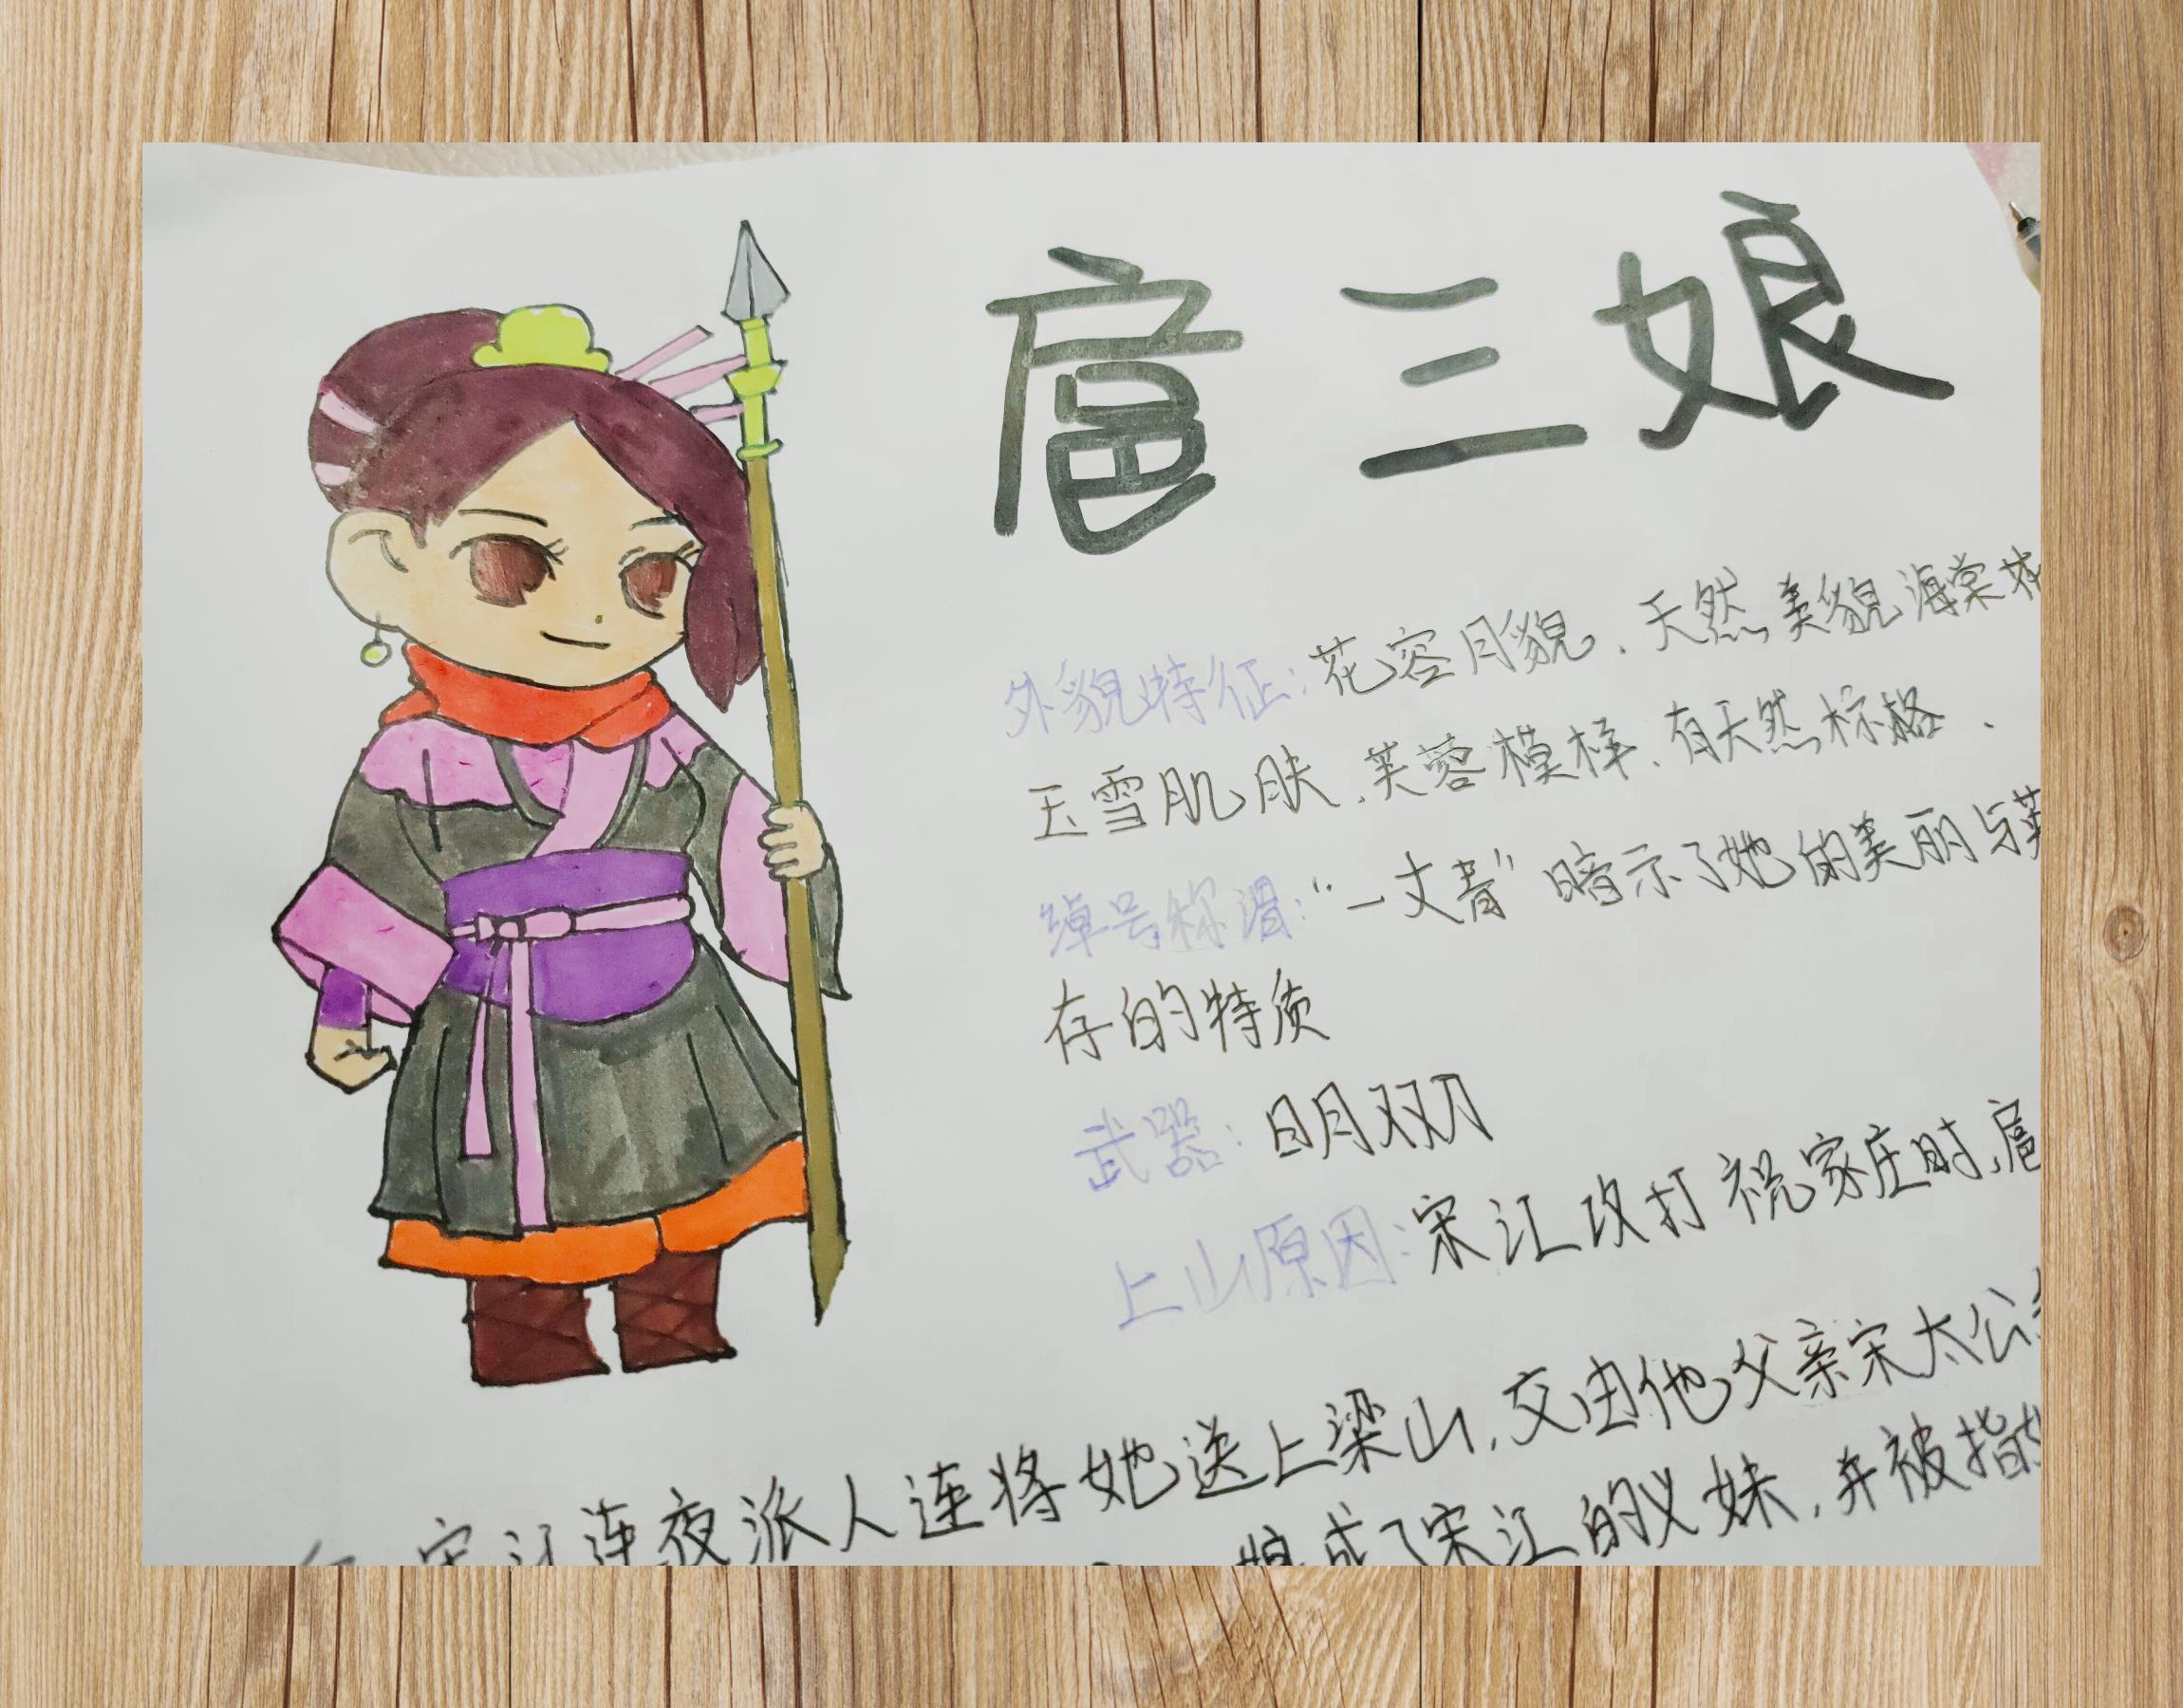 扈三娘
外貌特征:花容月貌、天然美貌海棠
玉雪肌肤、芙蓉模样、有天然标格、
绰号称谓:“一丈青”暗示了她的美丽与英
存的特质
武器:日月双刀
上山原因:宋江攻打祝家庄时,扈
交由他父亲宋太公
宋江连夜派人连将她送上梁山,
娘成了宋江的义妹,并被指